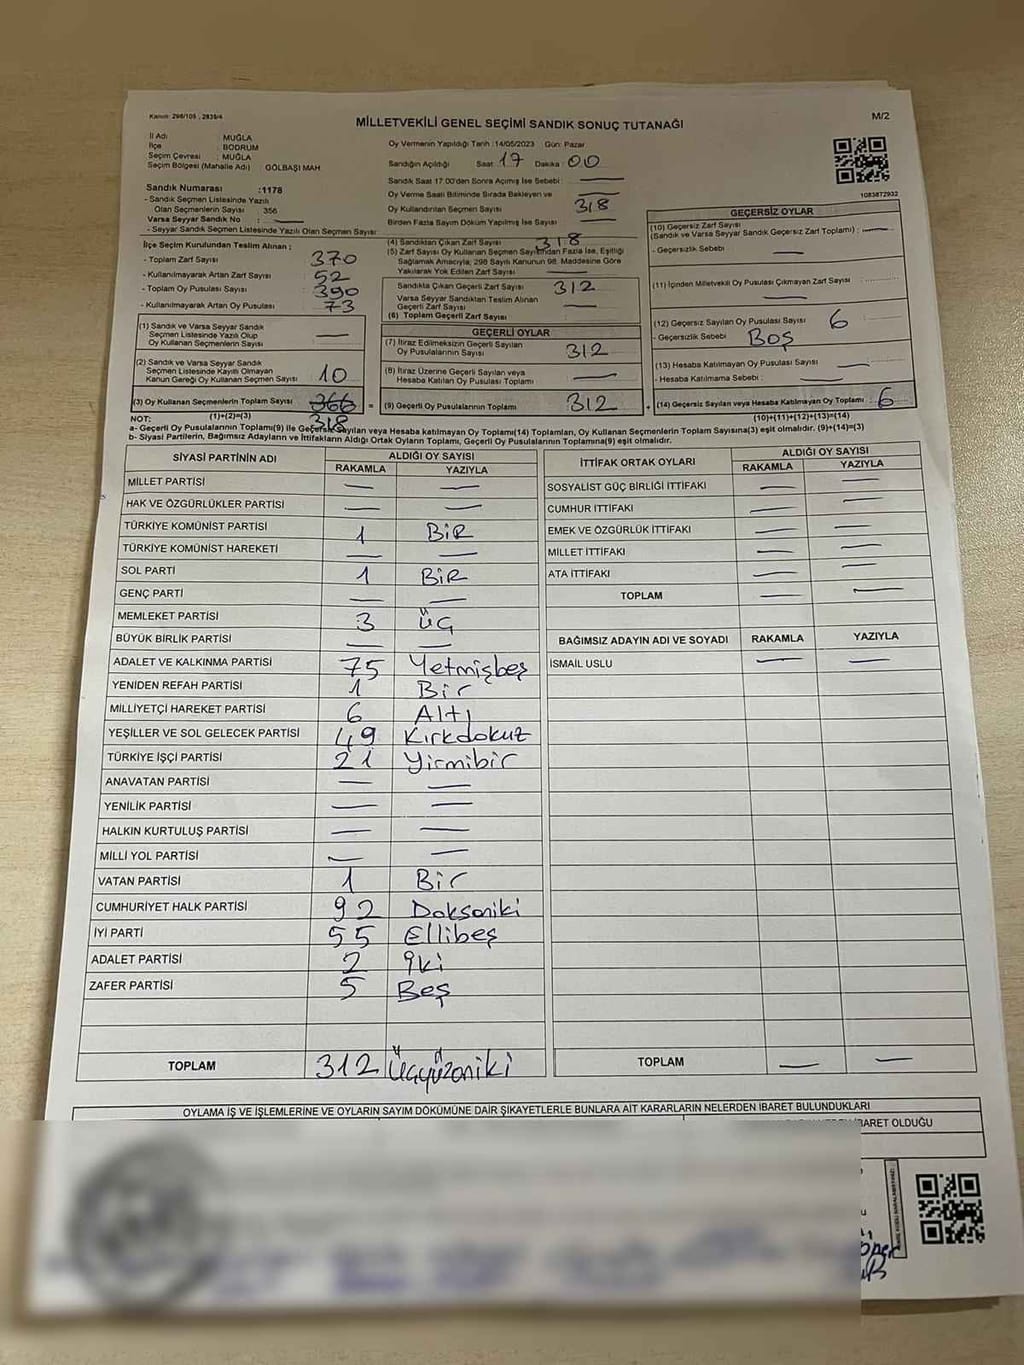 Kanun: 298/105 , 2839/4
M/2
MİLLETVEKİLİ GENEL SEÇİMİ SANDIK SONUÇ TUTANAĞI
İl Adı : MUĞLA
İlçe : BODRUM
Seçim Çevresi : MUĞLA
Seçim Bölgesi (Mahalle Adı) GÖLBAŞI MAH
Sandık Numarası :1178
- Sandık Seçmen Listesinde Yazılı
Olan Seçmenlerin Sayısı 356
Varsa Seyyar Sandık No : —
- Seyyar Sandık Seçmen Listesinde Yazılı Olan Seçmen Sayısı:
İlçe Seçim Kurulundan Teslim Alınan ;
- Toplam Zarf Sayısı 370
- Kullanılmayarak Artan Zarf Sayısı 52
- Toplam Oy Pusulası Sayısı 390
- Kullanılmayarak Artan Oy Pusulası 73
(1) Sandık ve Varsa Seyyar Sandık
Seçmen Listesinde Yazılı Olup
Oy Kullanan Seçmenlerin Sayısı —
(2) Sandık ve Varsa Seyyar Sandık
Seçmen Listesinde Kayıtlı Olmayan
Kanun Gereği Oy Kullanan Seçmen Sayısı 10
(3) Oy Kullanan Seçmenlerin Toplam Sayısı 366
(1)+(2)=(3) 318
Oy Vermenin Yapıldığı Tarih :14/05/2023 Gün: Pazar
Sandığın Açıldığı Saat : 17 Dakika : 00
Sandık Saat 17:00'den Sonra Açılmış İse Sebebi : —
Oy Verme Saati Bitiminde Sırada Bekleyen ve
Oy Kullandırılan Seçmen Sayısı 318
Birden Fazla Sayım Döküm Yapılmış İse Sayısı : —
(4) Sandıktan Çıkan Zarf Sayısı 318
(5) Zarf Sayısı Oy Kullanan Seçmen Sayısından Fazla İse, Eşitliği
Sağlamak Amacıyla; 298 Sayılı Kanunun 98. Maddesine Göre
Yakılarak Yok Edilen Zarf Sayısı —
Sandıkta Çıkan Geçerli Zarf Sayısı 312
Varsa Seyyar Sandıktan Teslim Alınan
Geçerli Zarf Sayısı —
(6) Toplam Geçerli Zarf Sayısı
GEÇERLİ OYLAR
(7) İtiraz Edilmeksizin Geçerli Sayılan
Oy Pusulalarının Sayısı 312
(8) İtiraz Üzerine Geçerli Sayılan veya
Hesaba Katılan Oy Pusulası Toplamı —
= (9) Geçerli Oy Pusulalarının Toplamı 312
1083872932
GEÇERSİZ OYLAR
(10) Geçersiz Zarf Sayısı
(Sandık ve Varsa Seyyar Sandık Geçersiz Zarf Toplamı) : —
- Geçersizlik Sebebi : —
(11) İçinden Milletvekili Oy Pusulası Çıkmayan Zarf Sayısı : —
(12) Geçersiz Sayılan Oy Pusulası Sayısı 6
- Geçersizlik Sebebi : Boş
(13) Hesaba Katılmayan Oy Pusulası Sayısı —
- Hesaba Katılmama Sebebi : —
+ (14) Geçersiz Sayılan veya Hesaba Katılmayan Oy Toplamı : 6
(10)+(11)+(12)+(13)=(14)
NOT:
a- Geçerli Oy Pusulalarının Toplamı(9) ile Geçersiz Sayılan veya Hesaba Katılmayan Oy Toplamı(14) Toplamları, Oy Kullanan Seçmenlerin Toplam Sayısına(3) eşit olmalıdır. (9)+(14)=(3)
b- Siyasi Partilerin, Bağımsız Adayların ve İttifakların Aldığı Ortak Oyların Toplamı, Geçerli Oy Pusulalarının Toplamına(9) eşit olmalıdır.
SİYASİ PARTİNİN ADI ALDIĞI OY SAYISI
RAKAMLA YAZIYLA
MİLLET PARTİSİ — —
HAK VE ÖZGÜRLÜKLER PARTİSİ — —
TÜRKİYE KOMÜNİST PARTİSİ 1 BİR
TÜRKİYE KOMÜNİST HAREKETİ — —
SOL PARTİ 1 BİR
GENÇ PARTİ — —
MEMLEKET PARTİSİ 3 ÜÇ
BÜYÜK BİRLİK PARTİSİ — —
ADALET VE KALKINMA PARTİSİ 75 Yetmişbeş
YENİDEN REFAH PARTİSİ 1 Bir
MİLLİYETÇİ HAREKET PARTİSİ 6 Altı
YEŞİLLER VE SOL GELECEK PARTİSİ 49 Kırkdokuz
TÜRKİYE İŞÇİ PARTİSİ 21 Yirmibir
ANAVATAN PARTİSİ — —
YENİLİK PARTİSİ — —
HALKIN KURTULUŞ PARTİSİ — —
MİLLİ YOL PARTİSİ — —
VATAN PARTİSİ 1 Bir
CUMHURİYET HALK PARTİSİ 92 Doksaniki
İYİ PARTİ 55 Ellibeş
ADALET PARTİSİ 2 İki
ZAFER PARTİSİ 5 Beş
TOPLAM 312 Üçyüzoniki
İTTİFAK ORTAK OYLARI ALDIĞI OY SAYISI
RAKAMLA YAZIYLA
SOSYALİST GÜÇ BİRLİĞİ İTTİFAKI — —
CUMHUR İTTİFAKI — —
EMEK VE ÖZGÜRLÜK İTTİFAKI — —
MİLLET İTTİFAKI — —
ATA İTTİFAKI — —
TOPLAM — —
BAĞIMSIZ ADAYIN ADI VE SOYADI RAKAMLA YAZIYLA
İSMAİL USLU — —
TOPLAM — —
OYLAMA İŞ VE İŞLEMLERİNE VE OYLARIN SAYIM DÖKÜMÜNE DAİR ŞİKAYETLERLE BUNLARA AİT KARARLARIN NELERDEN İBARET BULUNDUKLARI
İBARET OLDUĞU